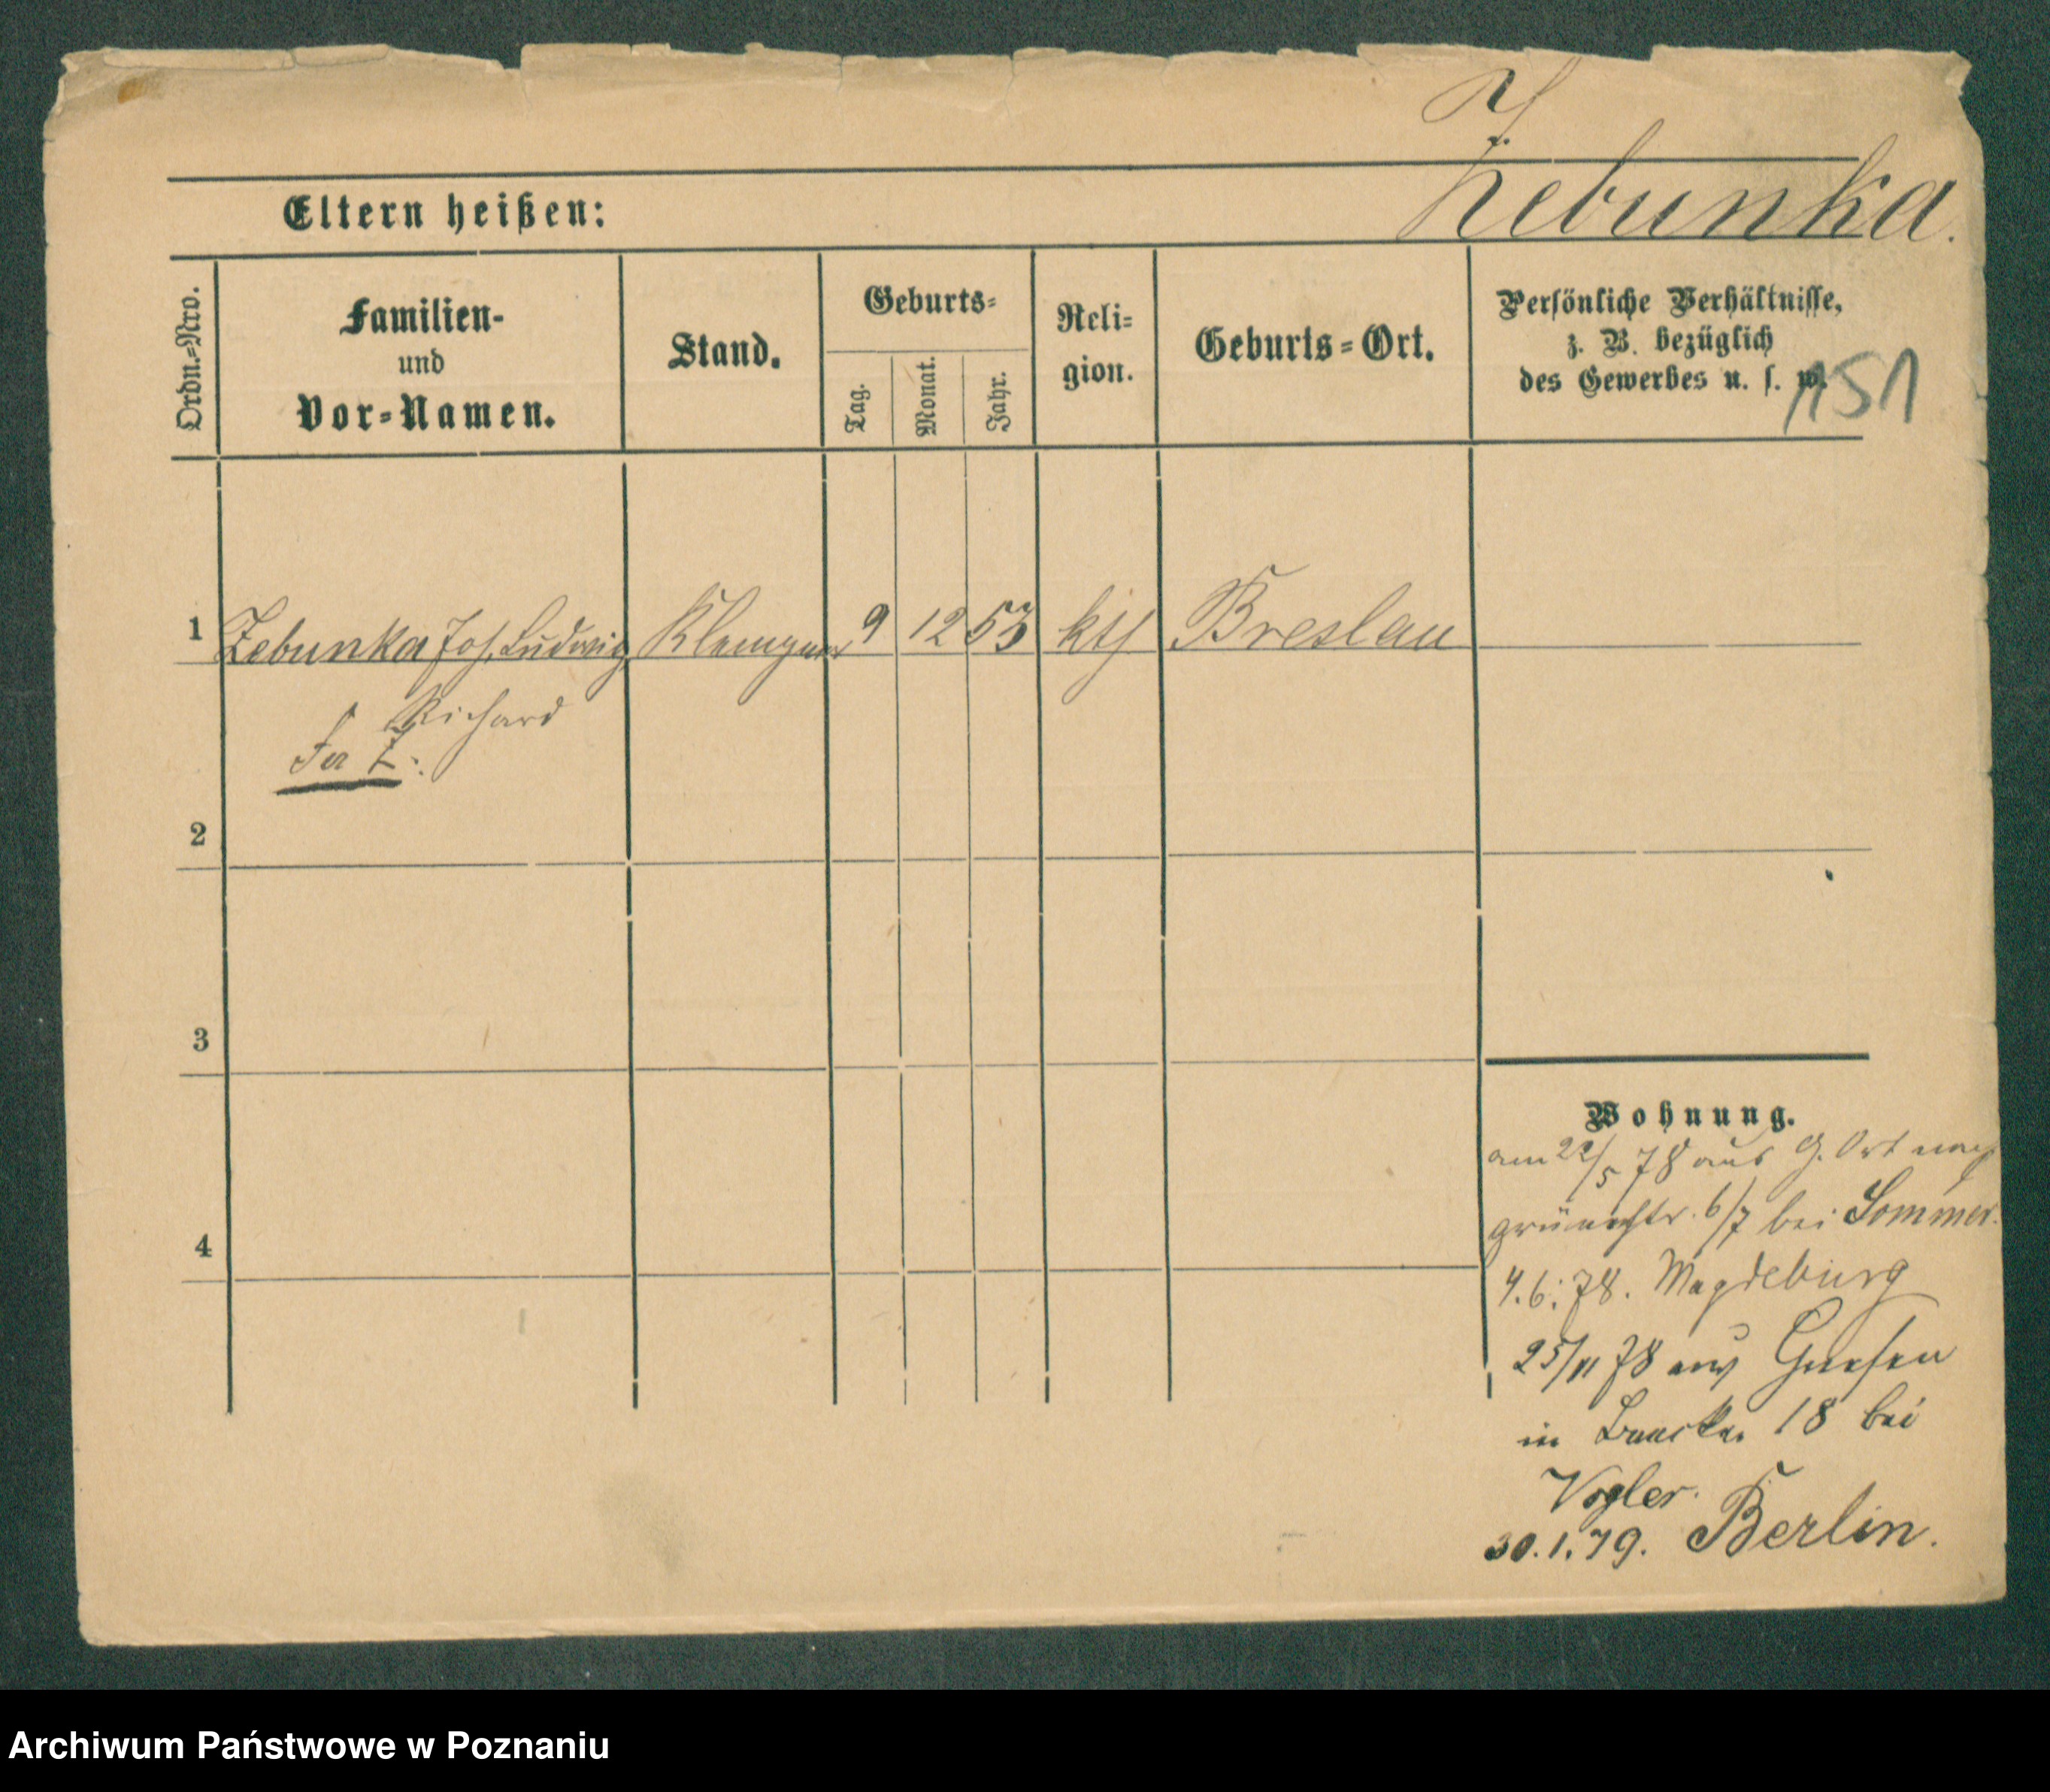 Z
Zebunka.
Eltern heißen:
Ordn.=Nro.
Familien-
und
Vor=Namen.
Stand.
Geburts=
Tag.
Monat.
Jahr.
Reli=
gion.
Geburts=Ort.
Persönliche Verhältnisse,
z. B. bezüglich
des Gewerbes u. s. w.
151
1 Zebunka Jos. Ludwig Klempner 9 12 53 kth Breslau
Richard
Z.
2
3
4
Wohnung.
am 22/5 78 aus G. Ort nach
grünestr. 6/7 bei Sommer.
4.6.78. Magdeburg
25/11 78 aus Gnesen
in 18 bei
Vogler.
30.1.79. Berlin.
Archiwum Państwowe w Poznaniu